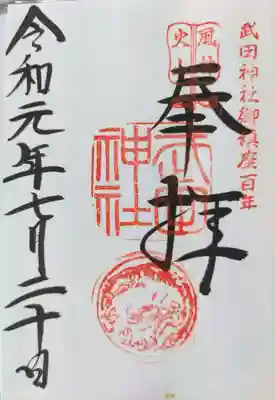 武田神社御鎮座百年
風林
火山
奉拝
武田
神社
令和元年七月二十日